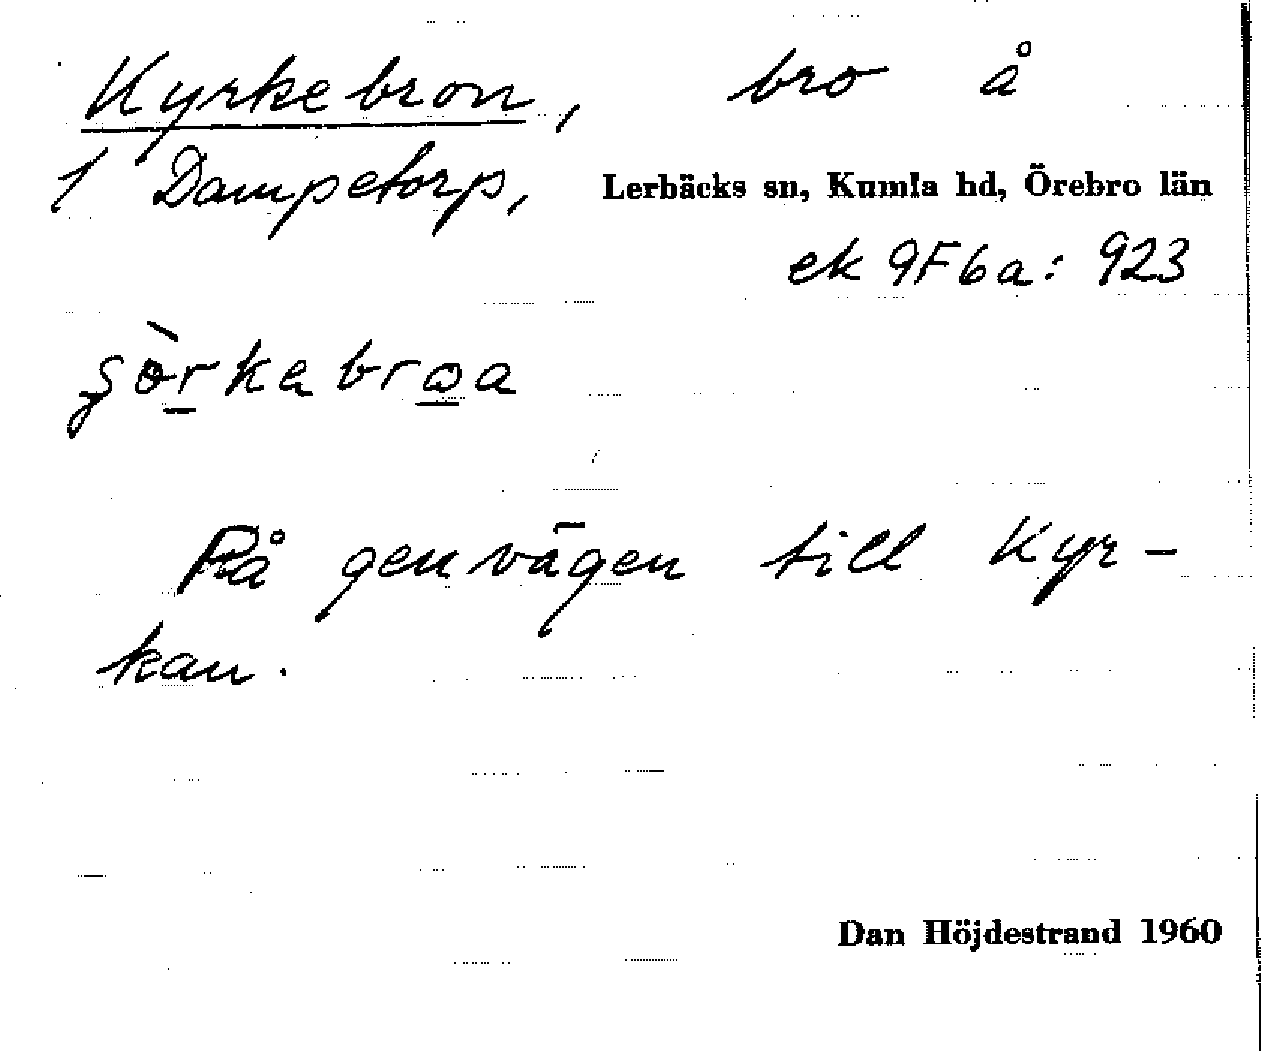 Kyrkebron, bro å
1 Dampetorp, Lerbäcks sn, Kumla hd, Örebro län
ek 9F6a: 923
På genvägen till Kyr-
kan.
Dan Höjdestrand 1960